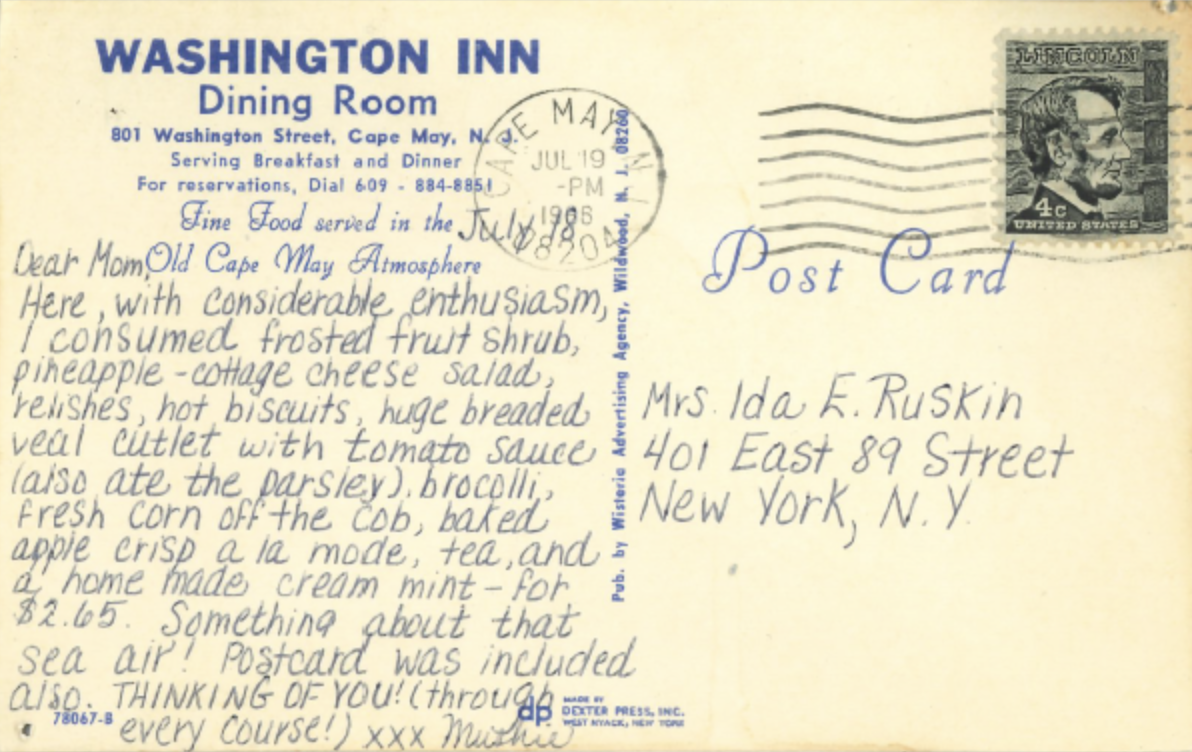 WASHINGTON INN
Dining Room
801 Washington Street, Cape May, N. J.
Serving Breakfast and Dinner
For reservations, Dial 609 - 884-8851
Fine Food served in the
Old Cape May Atmosphere
July 18
Dear Mom,
Here, with considerable enthusiasm,
I consumed frosted fruit shrub,
pineapple-cottage cheese salad,
relishes, hot biscuits, huge breaded
veal cutlet with tomato sauce
(also ate the parsley), brocolli,
fresh corn off the cob, baked
apple crisp a la mode, tea, and
a home made cream mint - for
$2.65. Something about that
sea air! Postcard was included
also. THINKING OF YOU! (through
every course!) xxx Mushie
78067-B
Pub. by Wisteria Advertising Agency, Wildwood, N. J. 08260
dp
MADE BY
DEXTER PRESS, INC.
WEST NYACK, NEW YORK
CAPE MAY N.J.
JUL 19
-PM
1966
08204
LINCOLN
4c
UNITED STATES
Post Card
Mrs. Ida E. Ruskin
401 East 89 Street
New York, N.Y.